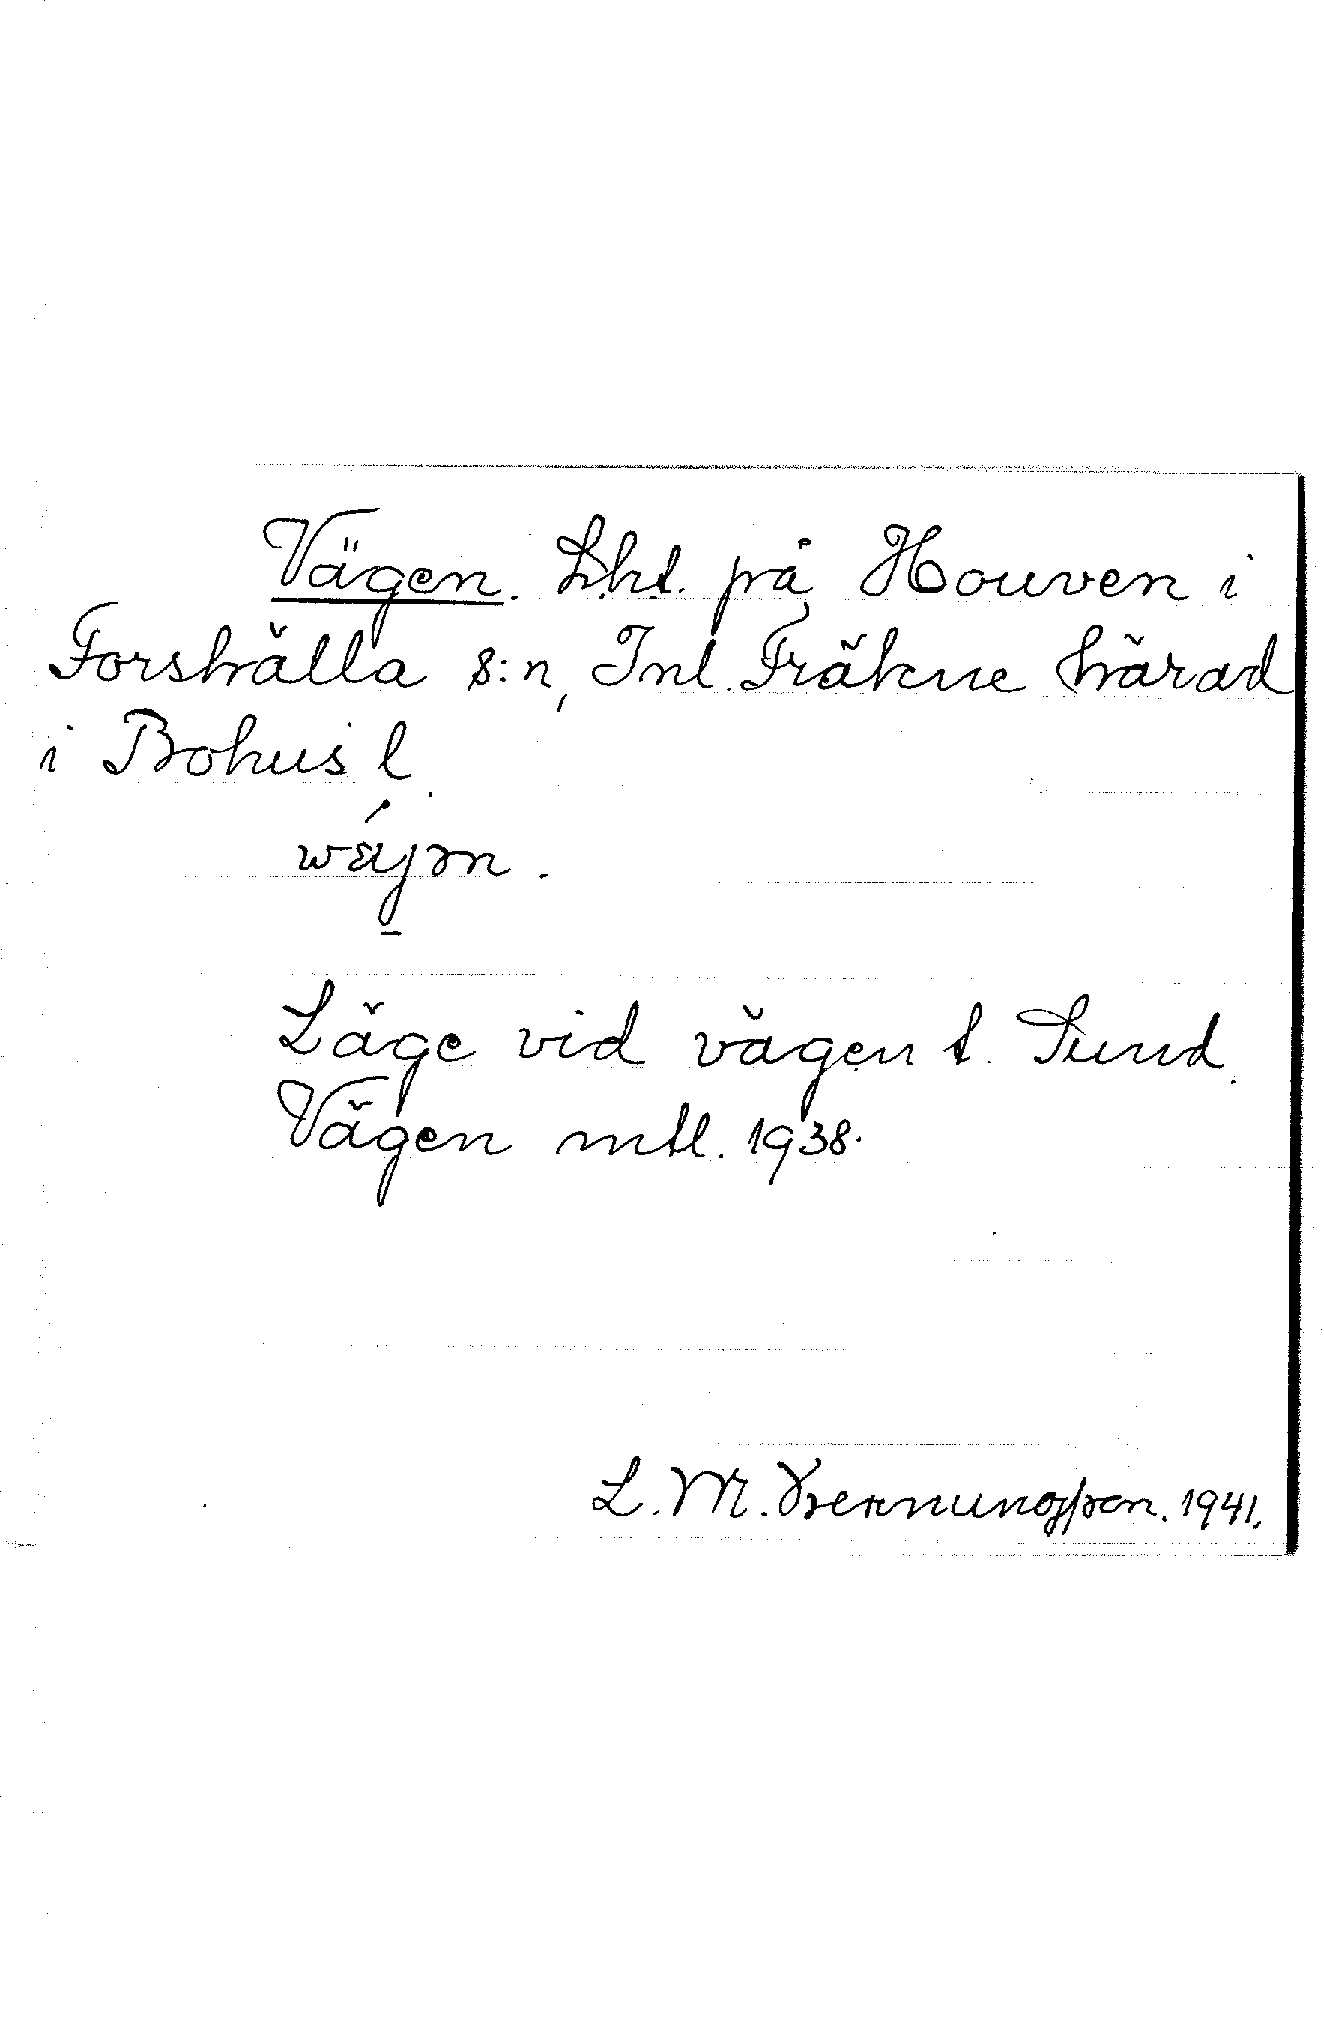 Vägen. Lht. på Houven i
Forshälla s:n, Inl. Fräkne härad
i Bohus l.
wǽjən.
Läge vid vägen t. Sund.
Vägen mtl. 1938.
L. M. 1941.